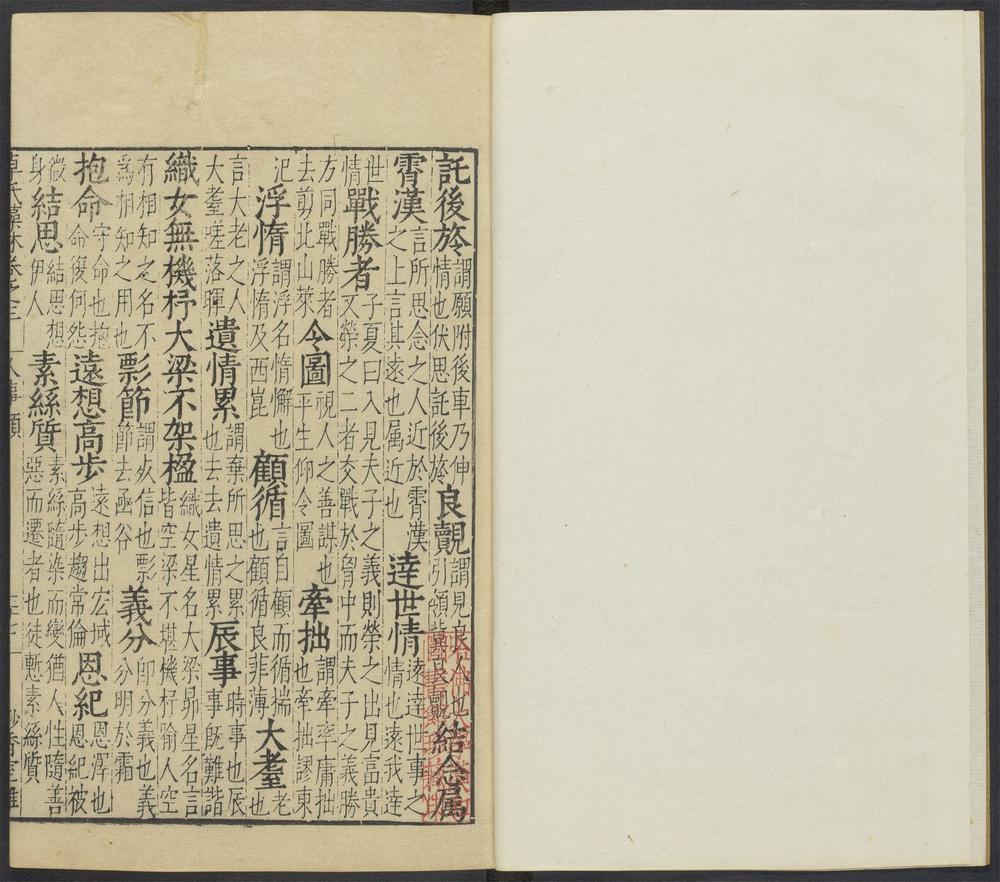 託後於謂願附後車乃伸情也伏思託後於良覿謂見良人也引領冀良覿結念属
霄漢言所思念之人近於霄漢之上言其遠也属近也逹世情遠逹世事之情也遠我逹
世情戰勝者子夏曰入見夫子之義則榮之出見富貴又榮之二者交戰於胷中而夫子之義勝
方同戰勝者去剪北山萊令圖視人之善謀也平生仰令圖牽拙謂牽率庸拙也牽拙謬東
汜浮惰謂浮名惰懈也浮惰及西崑顧循言自顧而循揣也顧循良菲薄大耋老也
言大老之人大耋嗟落暉遺情累謂棄所思之累也去去遺情累辰事時事也辰事旣難諧
織女無機杼大梁不架楹織女星名大梁昴星名言皆空梁不堪機杼喻人空
有相知之名不爲相知之用也彯節謂仗信也彯節去函谷義分卽分義也義分明於霜
抱命守命也抱命復何怨遠想高步遠想出宏域高步趨常倫恩紀恩澤也恩紀被
微身結思結思想伊人素絲質素絲隨染而變猶人性隨善惡而遷者也徒慙素絲質
卓氏藻林卷之三 人事類